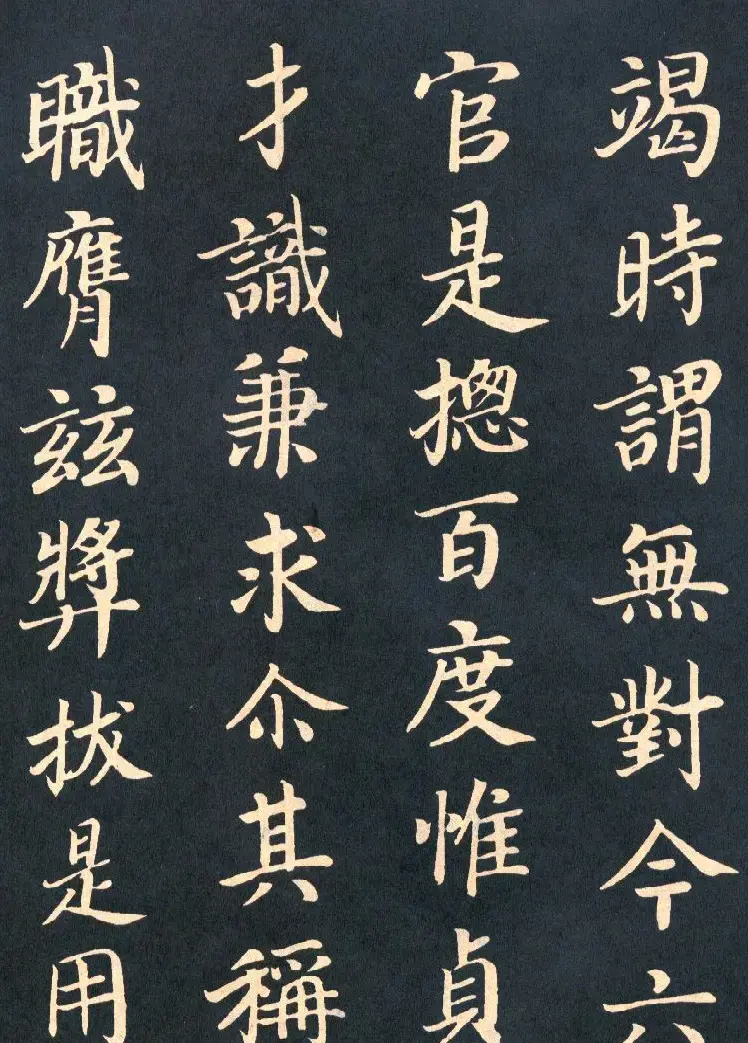 竭時謂無對今六
官是揔百度惟貞
才識兼求尒其稱
職膺兹獎拔是用